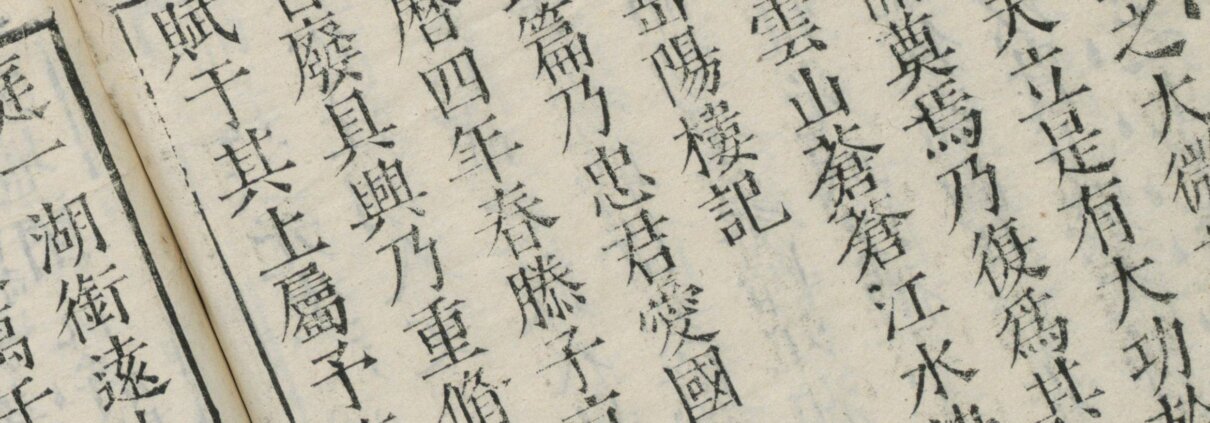 之大微
夫立是有大功於
而奠焉乃復爲其
雲山蒼蒼江水
岳陽樓記
篇乃忠君愛國
曆四年春滕子京
百廢具興乃重脩
賦于其上屬予
庭一湖銜遠
萬千